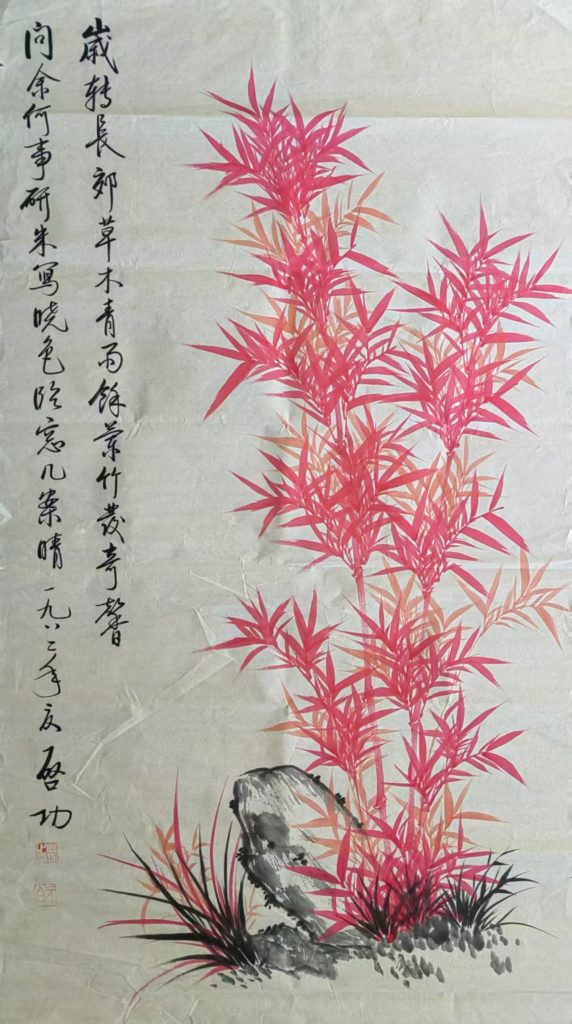 歲转長郊草木青雨餘蘭竹發奇馨
问余何事研朱寫晓色臨窓几案晴一九八二年夏啓功